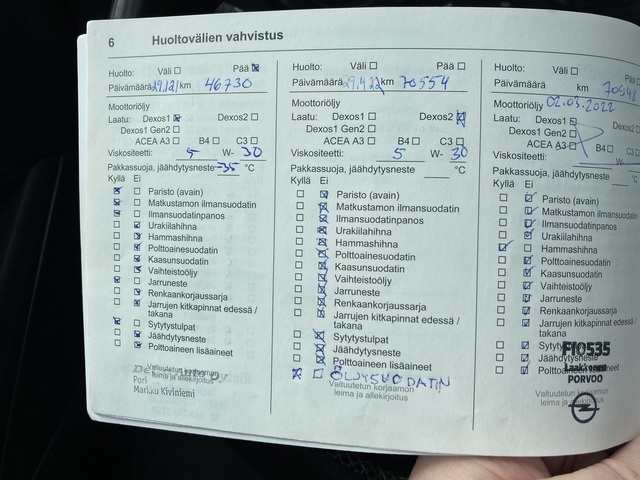 6 Huoltovälien vahvistus
Huolto: Väli ☐ Pää ☒
Päivämäärä km 46730
Moottoriöljy
Laatu: Dexos1 ☒ Dexos2 ☐
Dexos1 Gen2 ☐
ACEA A3 ☐ B4 ☐ C3 ☐
Viskositeetti: 5 W- 30
Pakkassuoja, jäähdytysneste -35 °C
Kyllä Ei
☒ ☐ Paristo (avain)
☒ ☐ Matkustamon ilmansuodatin
☒ ☐ Ilmansuodatinpanos
☐ ☒ Urakiilahihna
☐ ☒ Hammashihna
☐ ☒ Polttoainesuodatin
☐ ☒ Kaasunsuodatin
☐ ☒ Vaihteistoöljy
☒ ☐ Jarruneste
☐ ☒ Renkaankorjaussarja
☐ ☒ Jarrujen kitkapinnat edessä /
takana
☒ ☐ Sytytystulpat
☐ ☒ Jäähdytysneste
☐ ☒ Polttoaineen lisäaineet
Valtuutetun korjaamon
leima ja allekirjoitus
Pori
Markku Kiviniemi
Huolto: Väli ☐ Pää ☐
Päivämäärä km 70554
Moottoriöljy
Laatu: Dexos1 ☐ Dexos2 ☒
Dexos1 Gen2 ☐
ACEA A3 ☐ B4 ☐ C3 ☐
Viskositeetti: 5 W- 30
Pakkassuoja, jäähdytysneste °C
Kyllä Ei
☐ ☒ Paristo (avain)
☐ ☒ Matkustamon ilmansuodatin
☐ ☒ Ilmansuodatinpanos
☐ ☒ Urakiilahihna
☐ ☒ Hammashihna
☐ ☒ Polttoainesuodatin
☐ ☒ Kaasunsuodatin
☐ ☒ Vaihteistoöljy
☐ ☒ Jarruneste
☐ ☒ Renkaankorjaussarja
☐ ☒ Jarrujen kitkapinnat edessä /
takana
☐ ☒ Sytytystulpat
☐ ☒ Jäähdytysneste
☐ ☒ Polttoaineen lisäaineet
☒ ☐ ÖLJYSUODATIN
Valtuutetun korjaamon
leima ja allekirjoitus
Huolto: Väli ☐
Päivämäärä km
Moottoriöljy 02.03.2022
Laatu: Dexos1 Dexos2
Dexos1 Gen2 ☐
ACEA A3 ☐ B4 ☐ C3
Viskositeetti: W-
Pakkassuoja, jäähdytysneste
Kyllä Ei
☐ ☑ Paristo (avain)
☐ ☑ Matkustamon ilmansuodatin
☐ ☑ Ilmansuodatinpanos
☐ ☑ Urakiilahihna
☑ ☐ Hammashihna
☐ ☑ Polttoainesuodatin
☐ ☑ Kaasunsuodatin
☐ ☑ Vaihteistoöljy
☐ ☑ Jarruneste
☐ ☑ Renkaankorjaussarja
☐ ☑ Jarrujen kitkapinnat edessä /
takana
☐ ☑ FI0535
☐ ☑ Jäähdytysneste
☐ ☑ Polttoaineen lisäaineet
PORVOO
Valtuutetun korjaamon
leima ja allekirjoitus